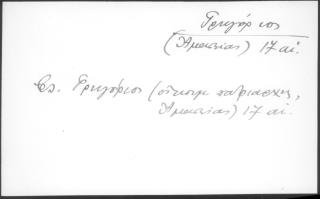 Γρηγόριος
(Ἀμασείας) 17 αἰ.
Βλ. Γρηγόριος (οἰκουμ. πατριάρχης,
Ἀμασείας) 17 αἰ.